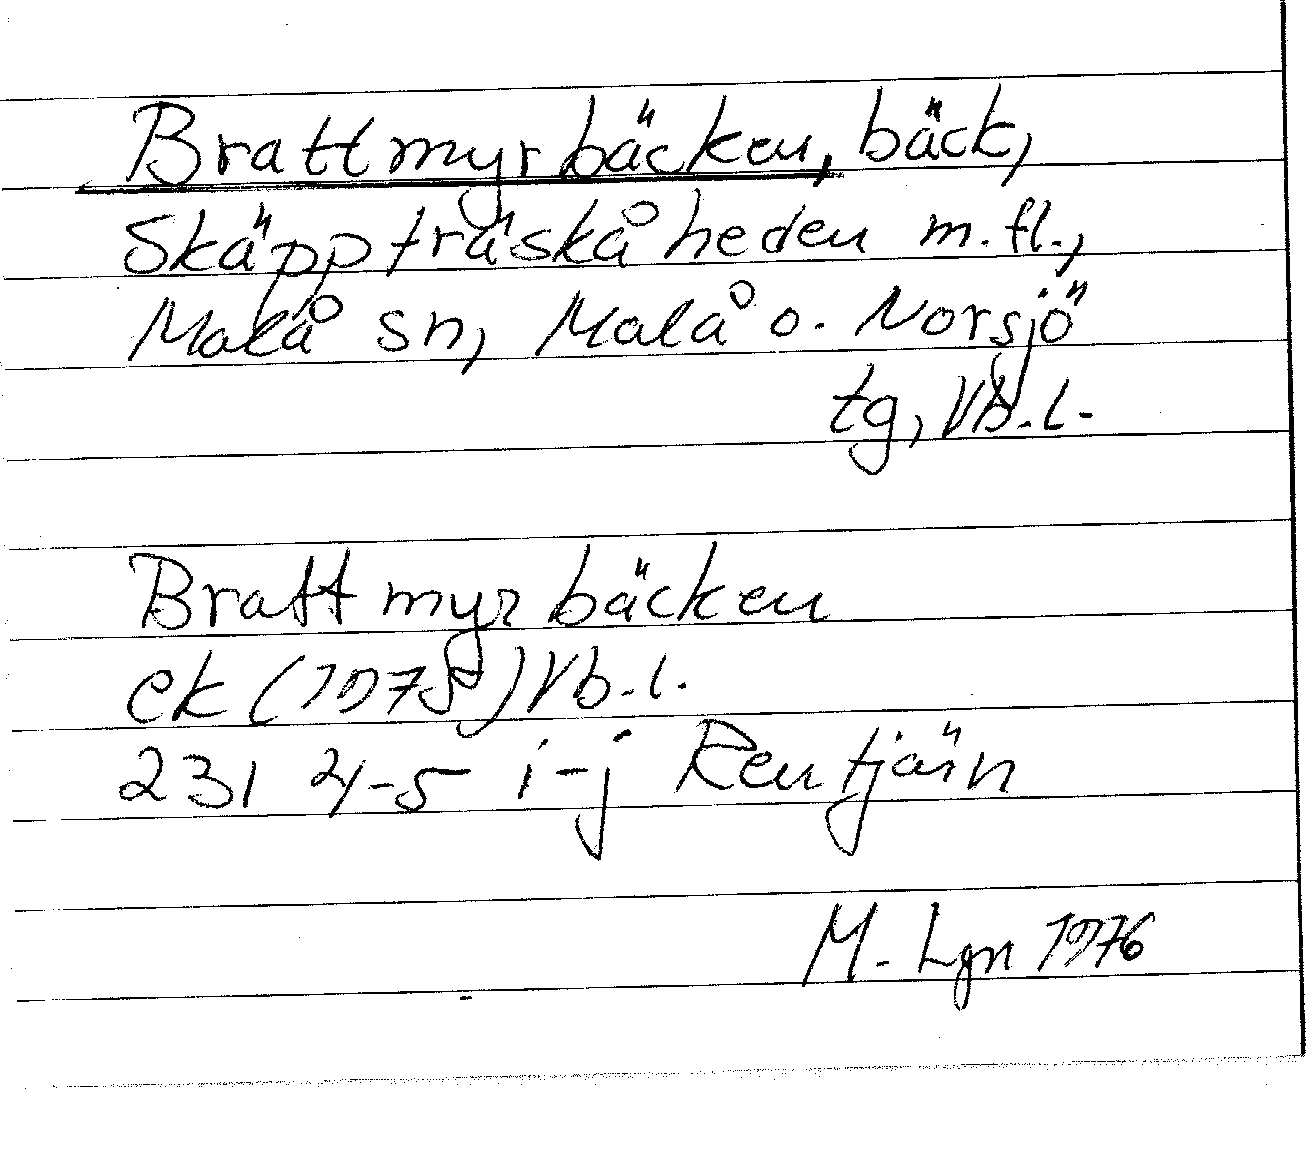 Brattmyrbäcken, bäck,
Skäppträskåheden m.fl.,
Malå sn, Malå o. Norsjö
tg, Vb.l.
Brattmyrbäcken
ek (1975) Vb.l.
231 4-5 i-j Rentjärn
M. Lgn 1976